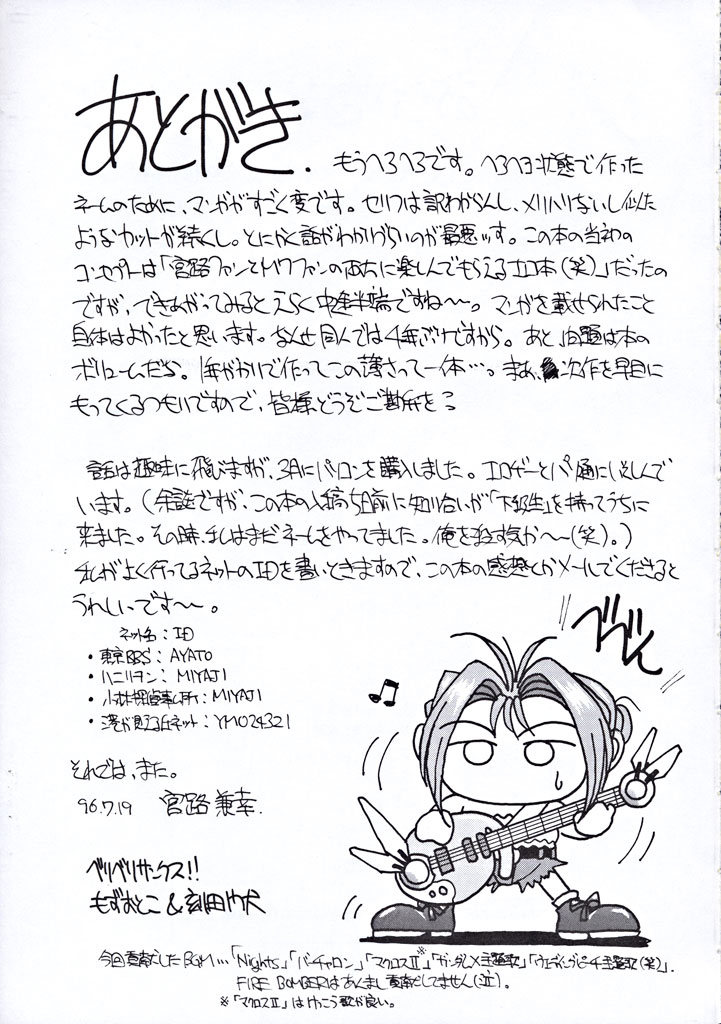 あとがき.
もうへろへろです。へろヘロ状態で作った
ネームのために、マンガがすごく変です。セリフは訳わからんし、メリハリないし似た
ようなカットが続くし。とにかく話がわかりづらいのが最悪ッす。この本の当初の
コンセプトは「宮路ファンとバサファンの両方に楽しんでもらえるエロ本(笑)」だったの
ですが、できあがってみるとえらく中途半端ですね〜〜。マンガを載せられたこと
自体はよかったと思います。なんせ同人では4年ぶりですから。あと、問題は本の
ボリュームだな。1年がかりで作ってこの薄さって一体…。まあ、次作を早目に
もってくるつもりですので、皆様どうぞご勘弁を。
話は趣味に飛びますが、3月にパソコンを購入しました。エロゲーとパソ通にいそしんで
います。(余談ですが、この本の入稿5日前に知り合いが「下級生」を持ってうちに
来ました。その時、私はまだネームをやってました。俺を殺す気か〜〜(笑)。)
私がよく行ってるネットのIDを書いときますので、この本の感想とかメールでくださると
うれしいです〜〜。
べべん
ネット名:ID
・東京BBS:AYATO
・ハニリヲン:MIYAJI
・小林探偵事ム所:MIYAJI
・港が見える丘ネット:YMO24321
それでは、また。
96.7.19 宮路兼幸.
ベリベリサンクス!!
もずおとこ&刻田門大
今回貢献したBGM…「Nights」「バーチャロン」「マクロスII※」「ガンダムX主題歌」「ウェディングピーチ主題歌(笑)」.
FIRE BOMBERはあんまし貢献してません(泣).
※「マクロスII」はけっこう歌が良い。